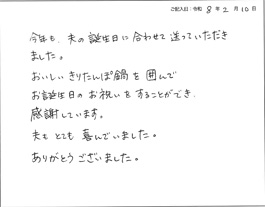 ご記入日：令和 8 年 2 月 10 日
今年も、夫の誕生日に合わせて送っていただき
ました。
おいしいきりたんぽ鍋を囲んで
お誕生日のお祝いをすることができ、
感謝しています。
夫もとても喜んでいました。
ありがとうございました。